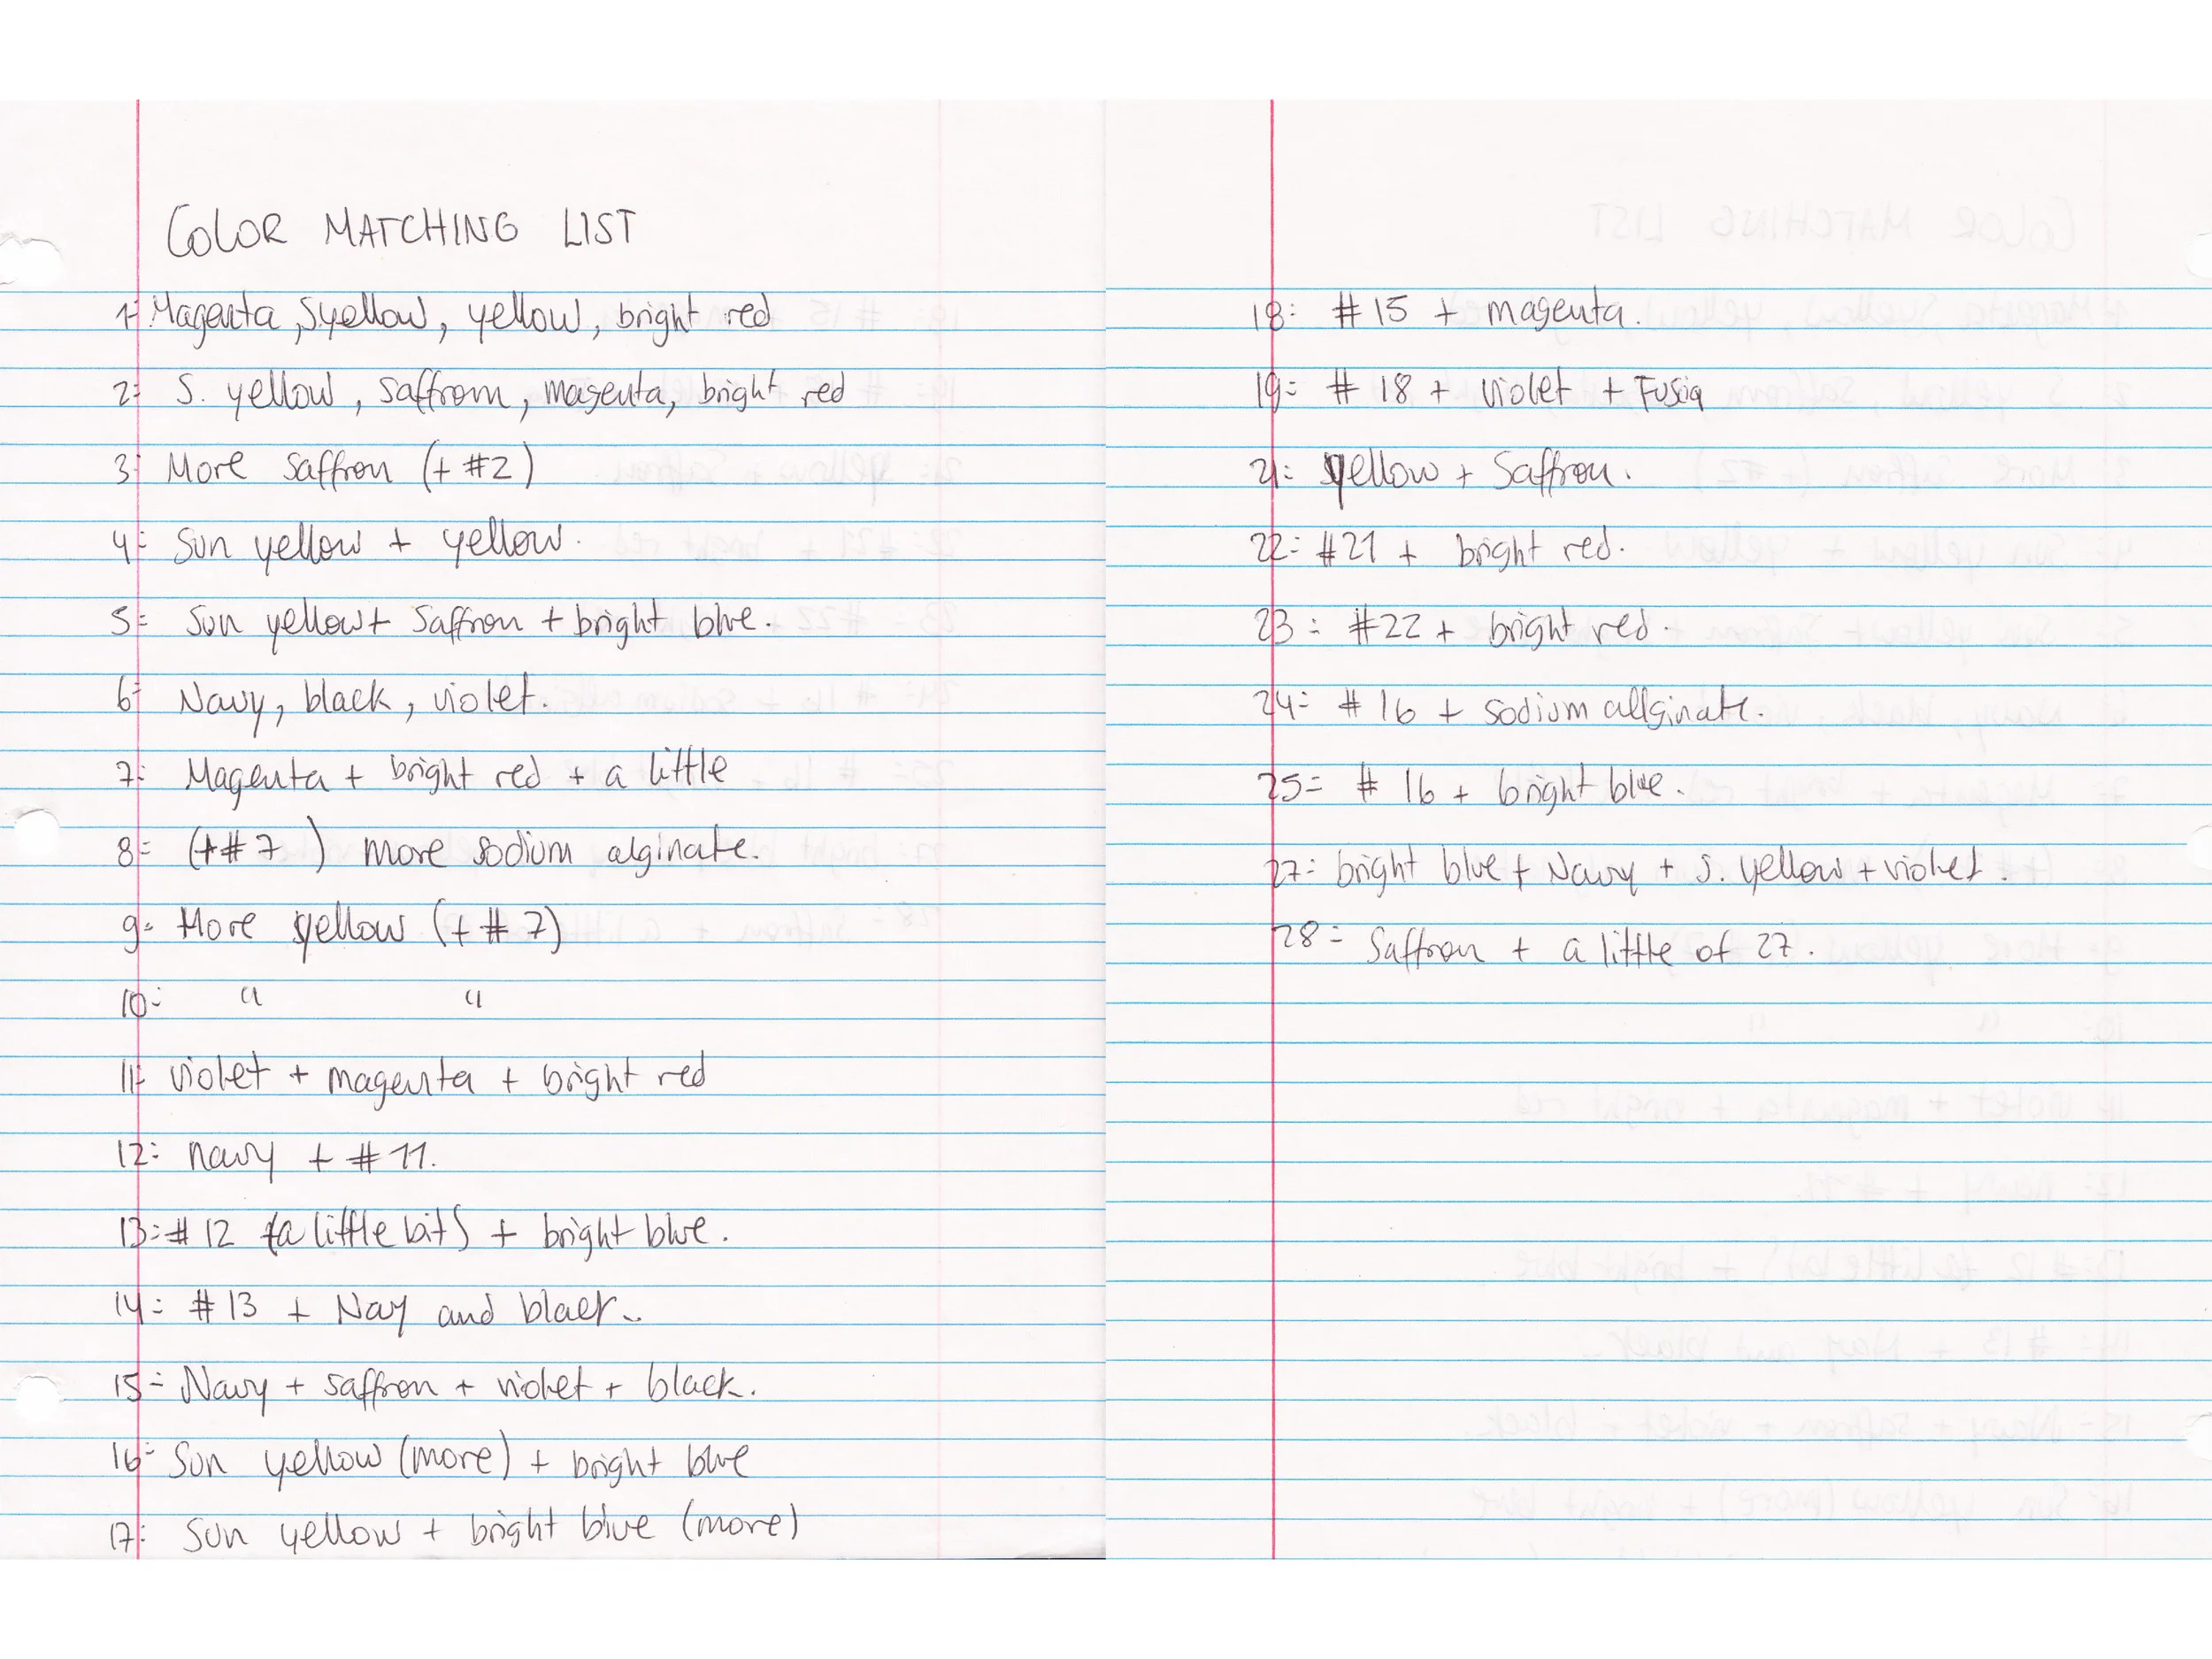 COLOR MATCHING LIST
1- Magenta, Syellow, yellow, bright red
2= S. yellow, saffrom, magenta, bright red
3: More saffron (+ #2)
4= Sun yellow + yellow.
5= Sun yellow + Saffron + bright blue.
6= Navy, black, violet.
7= Magenta + bright red + a little
8= (+# 7 ) more sodium alginate.
9= More yellow (+ # 7)
10= " "
11= violet + magenta + bright red
12= navy + # 11.
13= # 12 (a little bit) + bright blue.
14= # 13 + Nay and blaek.
15= Navy + saffron + violet + black.
16= Sun yellow (more) + bright blue
17= Sun yellow + bright blue (more)
18= # 15 + magenta.
19= # 18 + violet + Fusia
21= yellow + Saffron.
22= #21 + bright red.
23= #22 + bright red.
24= # 16 + sodium allginate.
25= # 16 + bright blue.
27= bright blue + Navy + S. yellow + violet.
28= Saffron + a little of 27.